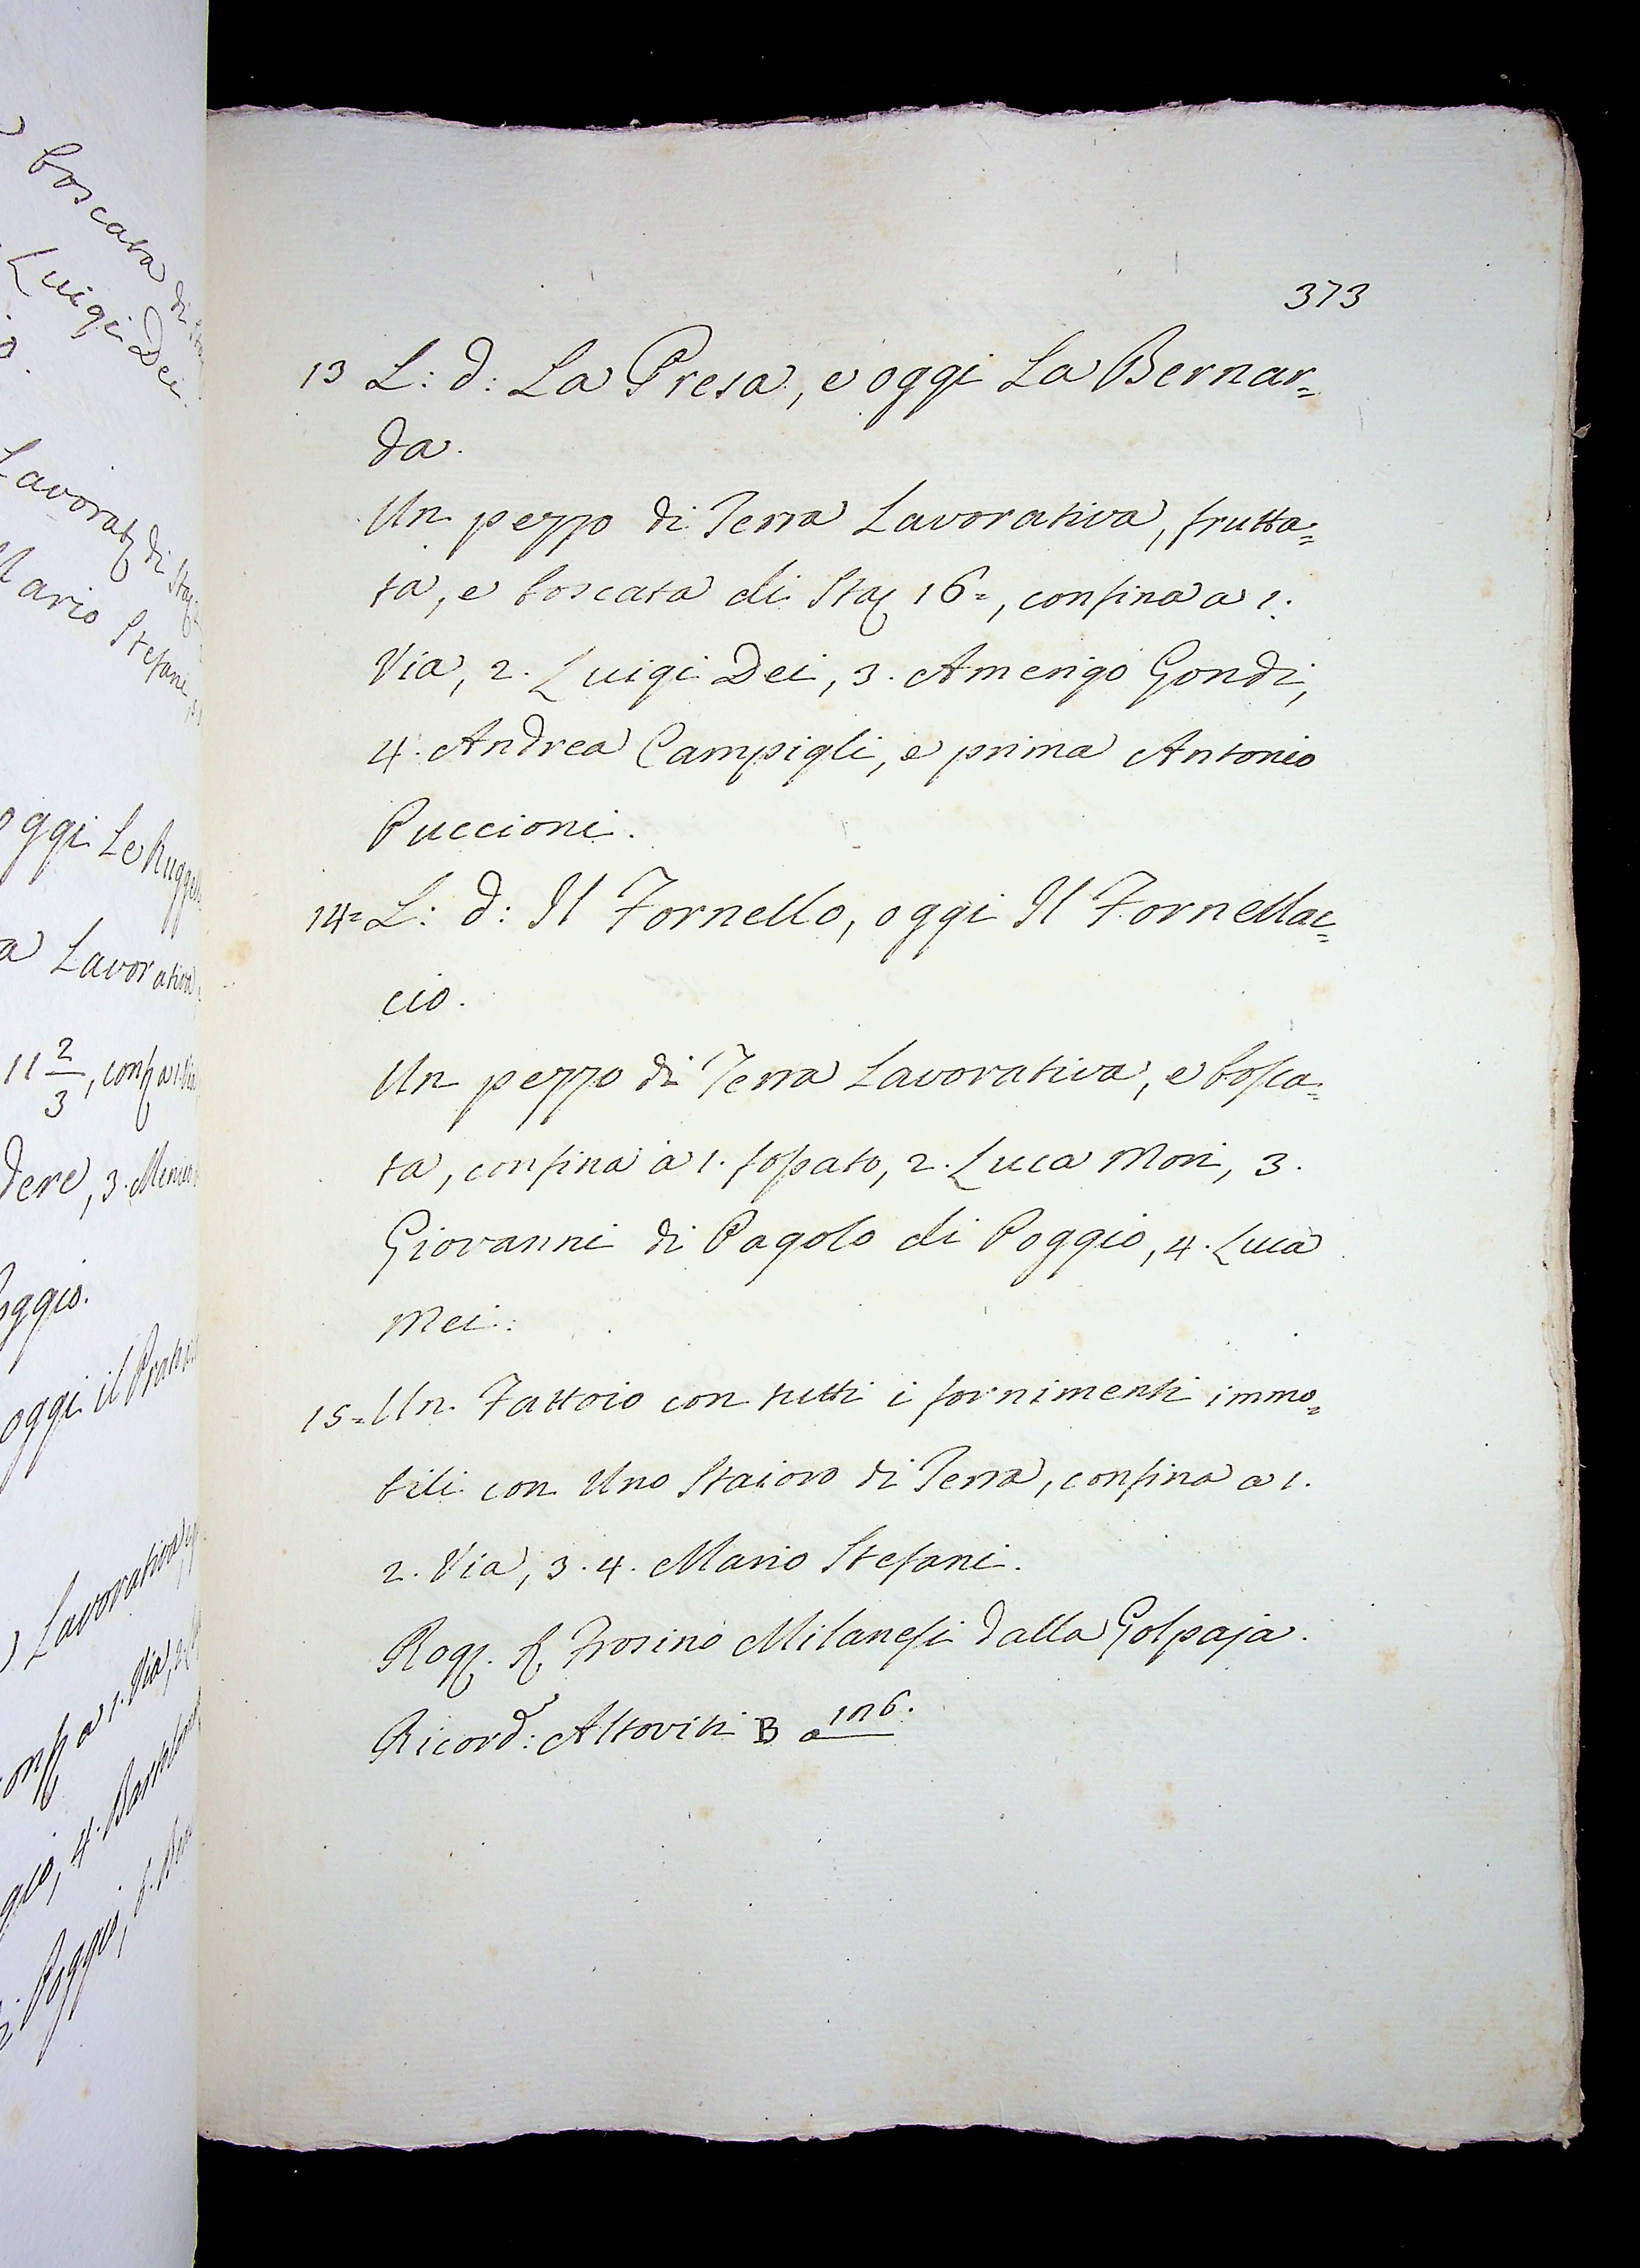 boscata di
Luigi Dei
Lavorat. di Sta.
Mario Stefani
oggi Le
a Lavorativa
11 2/3, conf. a 1. Via
dere, 3.
Poggio.
oggi il
Lavorativa
conf. a 1. Via
gio, 4.
Poggio,
373
13 L: d: La Presa, e oggi La Bernar=
da.
Un pezzo di Terra Lavorativa, frutta=
ta, e boscata di Sta. 16=, confina a 1.
Via, 2. Luigi Dei, 3. Amerigo Gondi,
4. Andrea Campigli, e prima Antonio
Puccioni.
14= L: d: Il Fornello, oggi Il Fornellac=
cio.
Un pezzo di Terra Lavorativa, e bosca=
ta, confina a 1. fossato, 2. Luca Mori, 3.
Giovanni di Pagolo di Poggio, 4. Luca
Mei.
15= Un Fattoio con tutti i fornimenti immo=
bili con Uno Staioro di Terra, confina a 1.
2. Via, 3. 4. Mario Stefani.
Rog. S. Frosino Milanesi dalla Golpaja.
Ricord: Altoviti B a 176.